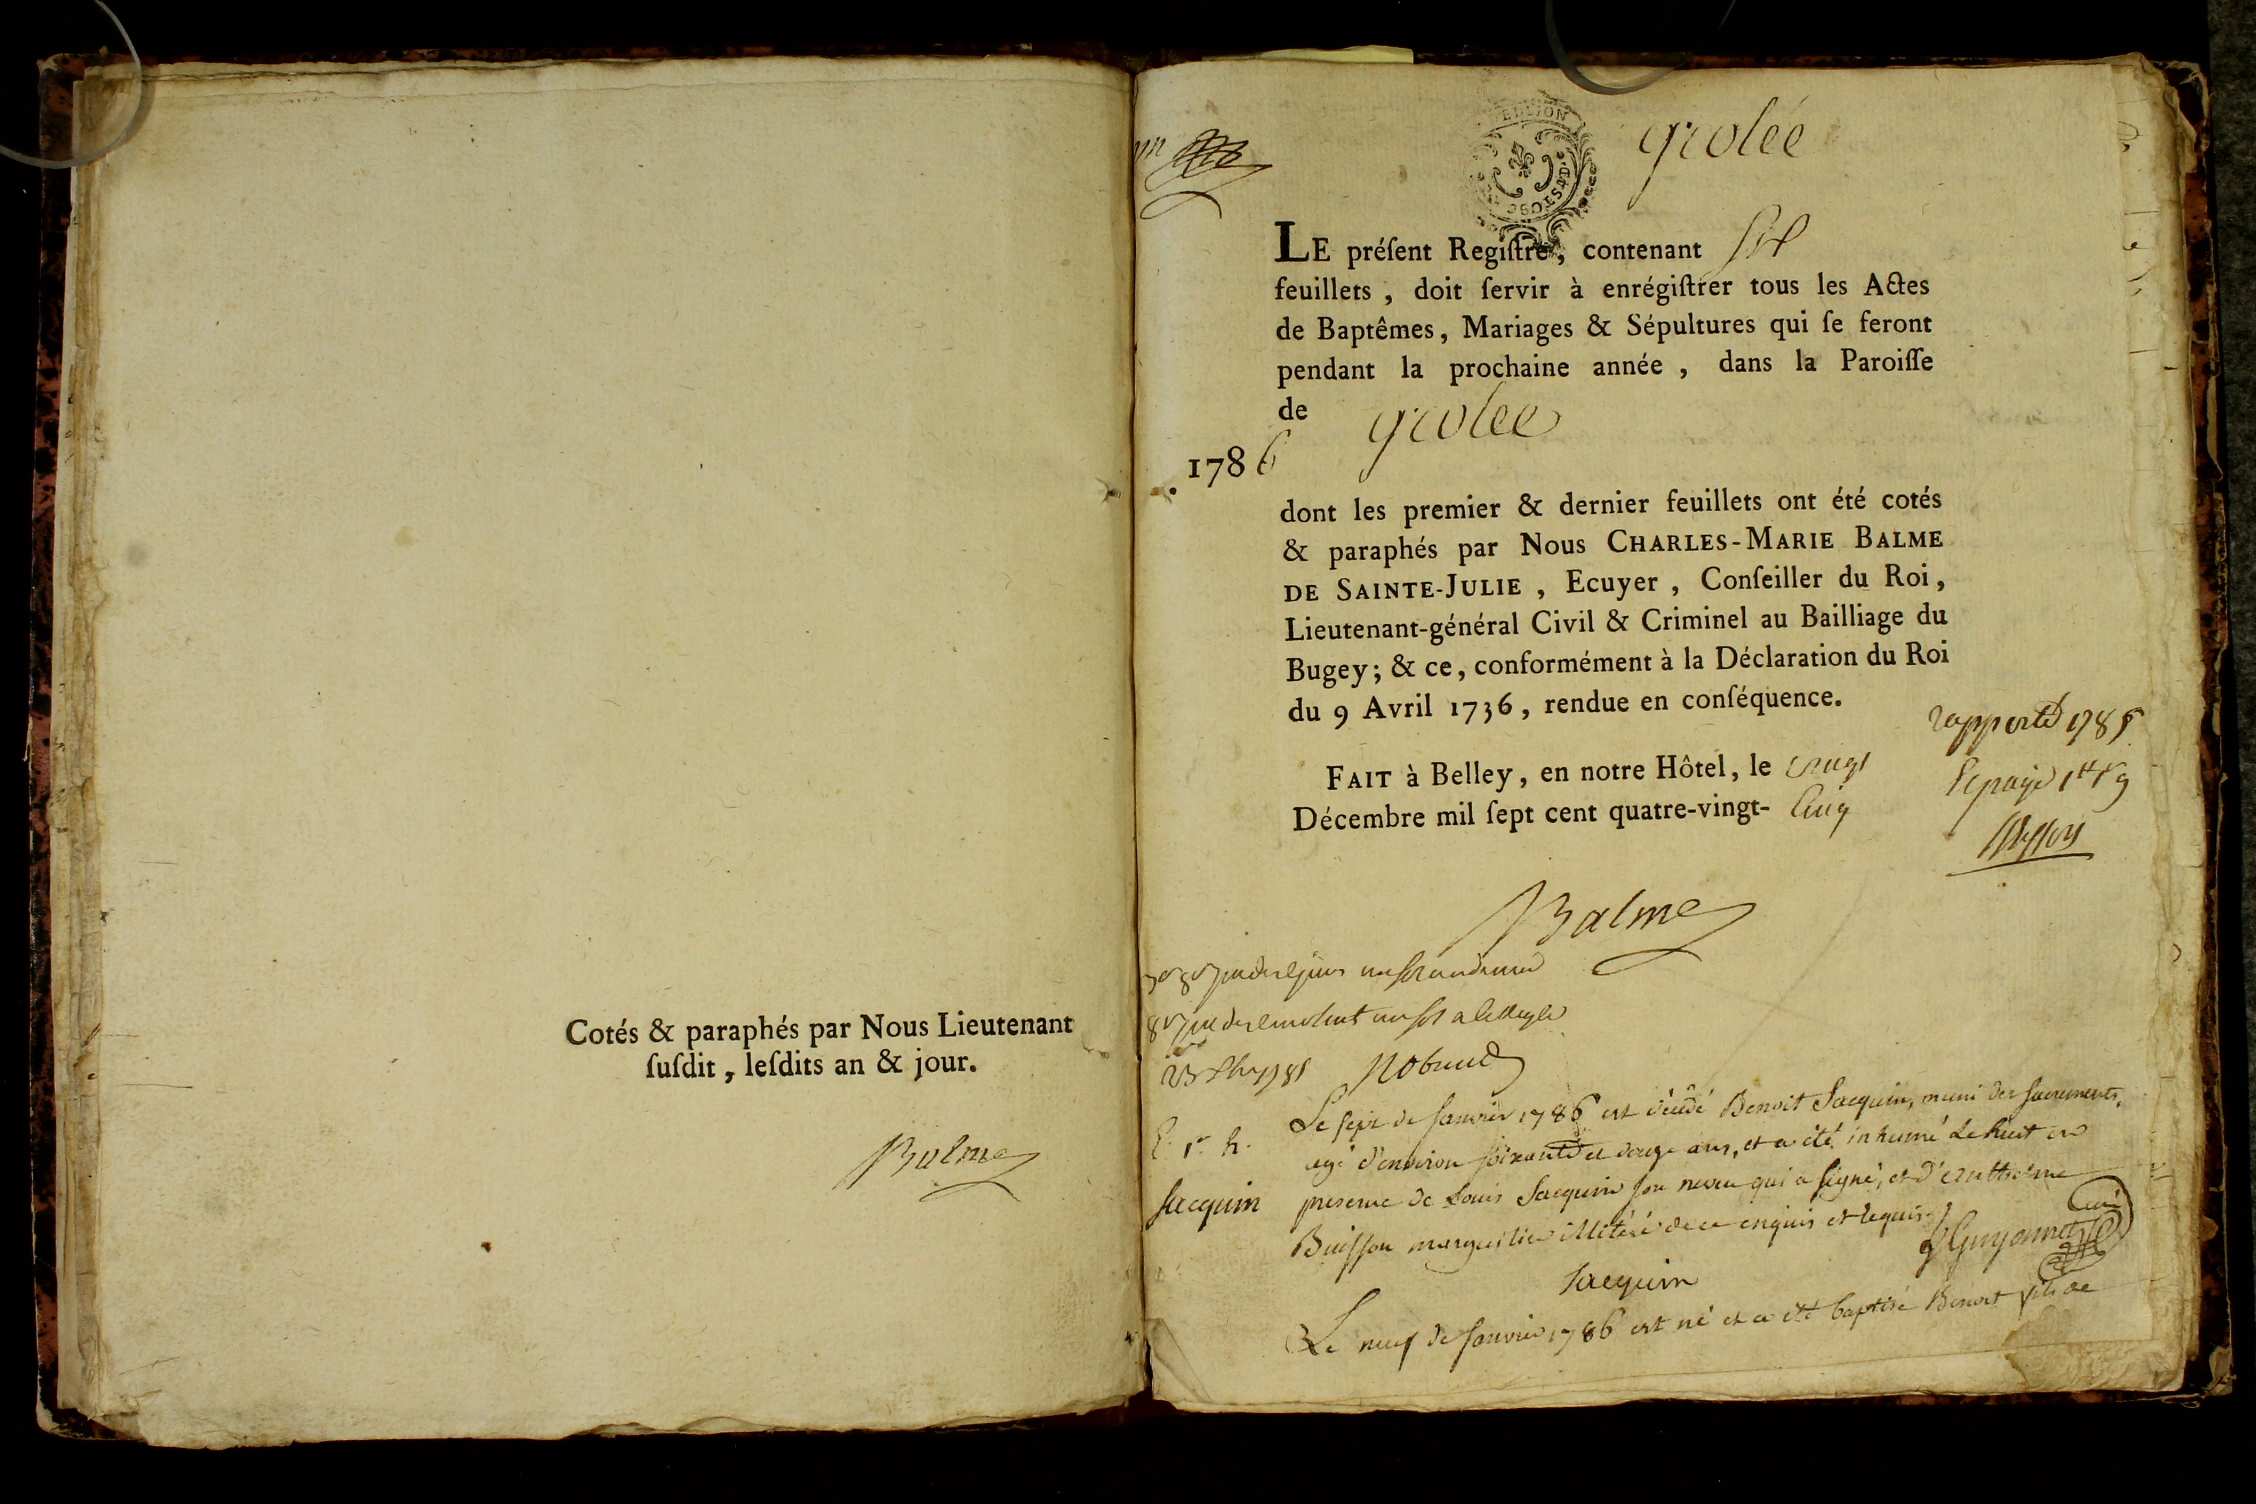 Cotés & paraphés par Nous Lieutenant
ſuſdit, leſdits an & jour.
Balme
grolée
LE préſent Regiſtre, contenant ſix
feuillets, doit ſervir à enrégiſtrer tous les Actes
de Baptêmes, Mariages & Sépultures qui ſe feront
pendant la prochaine année, dans la Paroiſſe
de grolee
1786
dont les premier & dernier feuillets ont été cotés
& paraphés par Nous CHARLES-MARIE BALME
DE SAINTE-JULIE, Ecuyer, Conſeiller du Roi,
Lieutenant-général Civil & Criminel au Bailliage du
Bugey; & ce, conformément à la Déclaration du Roi
du 9 Avril 1736, rendue en conſéquence.
FAIT à Belley, en notre Hôtel, le vingt
Décembre mil ſept cent quatre-vingt-Cinq
rapporté
Balme
Le sept de Janvier 1786 est décédé Benoit Jacquin, muni des sacrements,
agé d'environ soixante et douze ans, et a été inhumé le huit en
Jacquin
presence de Louis Jacquin son neveu qui a signé, et d'Anthelme
Buisson marguilier illitéré de ce enquis et requis.
Guyonnet Curé
Jacquin
Le neuf de Janvier 1786 est né et a été baptisé Benoit fils de